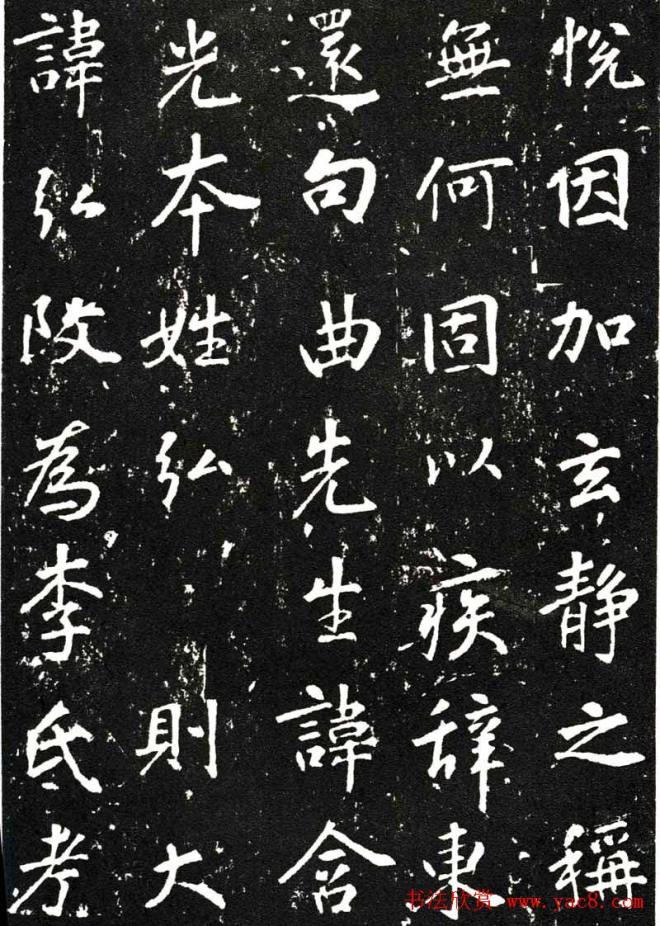 悅因加玄静之稱
無何固以疾辞東
還句曲先生諱含
光本姓弘則大
諱弘改為李氏考
书法欣赏 www.yac8.com